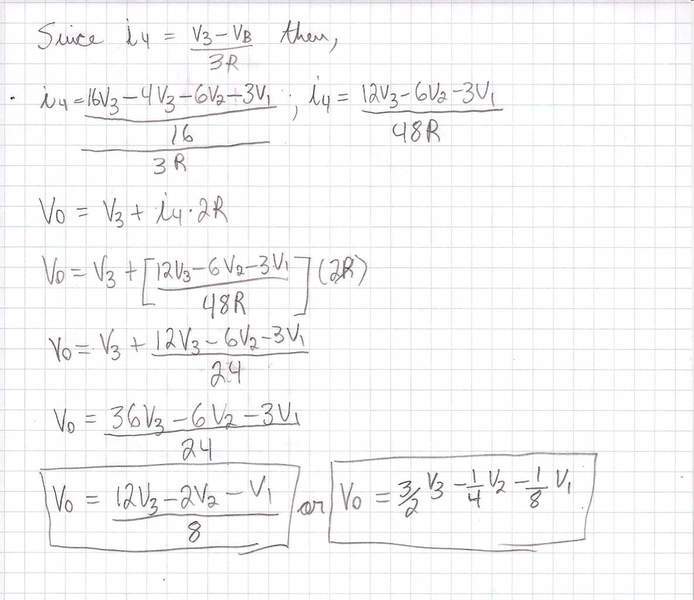 Since i₄ = (V₃ − V_B)/3R then,
· i₄ = ((16V₃ − 4V₃ − 6V₂ − 3V₁)/16)/3R ; i₄ = (12V₃ − 6V₂ − 3V₁)/48R
V₀ = V₃ + i₄ · 2R
V₀ = V₃ + [(12V₃ − 6V₂ − 3V₁)/48R] (2R)
V₀ = V₃ + (12V₃ − 6V₂ − 3V₁)/24
V₀ = (36V₃ − 6V₂ − 3V₁)/24
V₀ = (12V₃ − 2V₂ − V₁)/8 or V₀ = 3/2 V₃ − 1/4 V₂ − 1/8 V₁